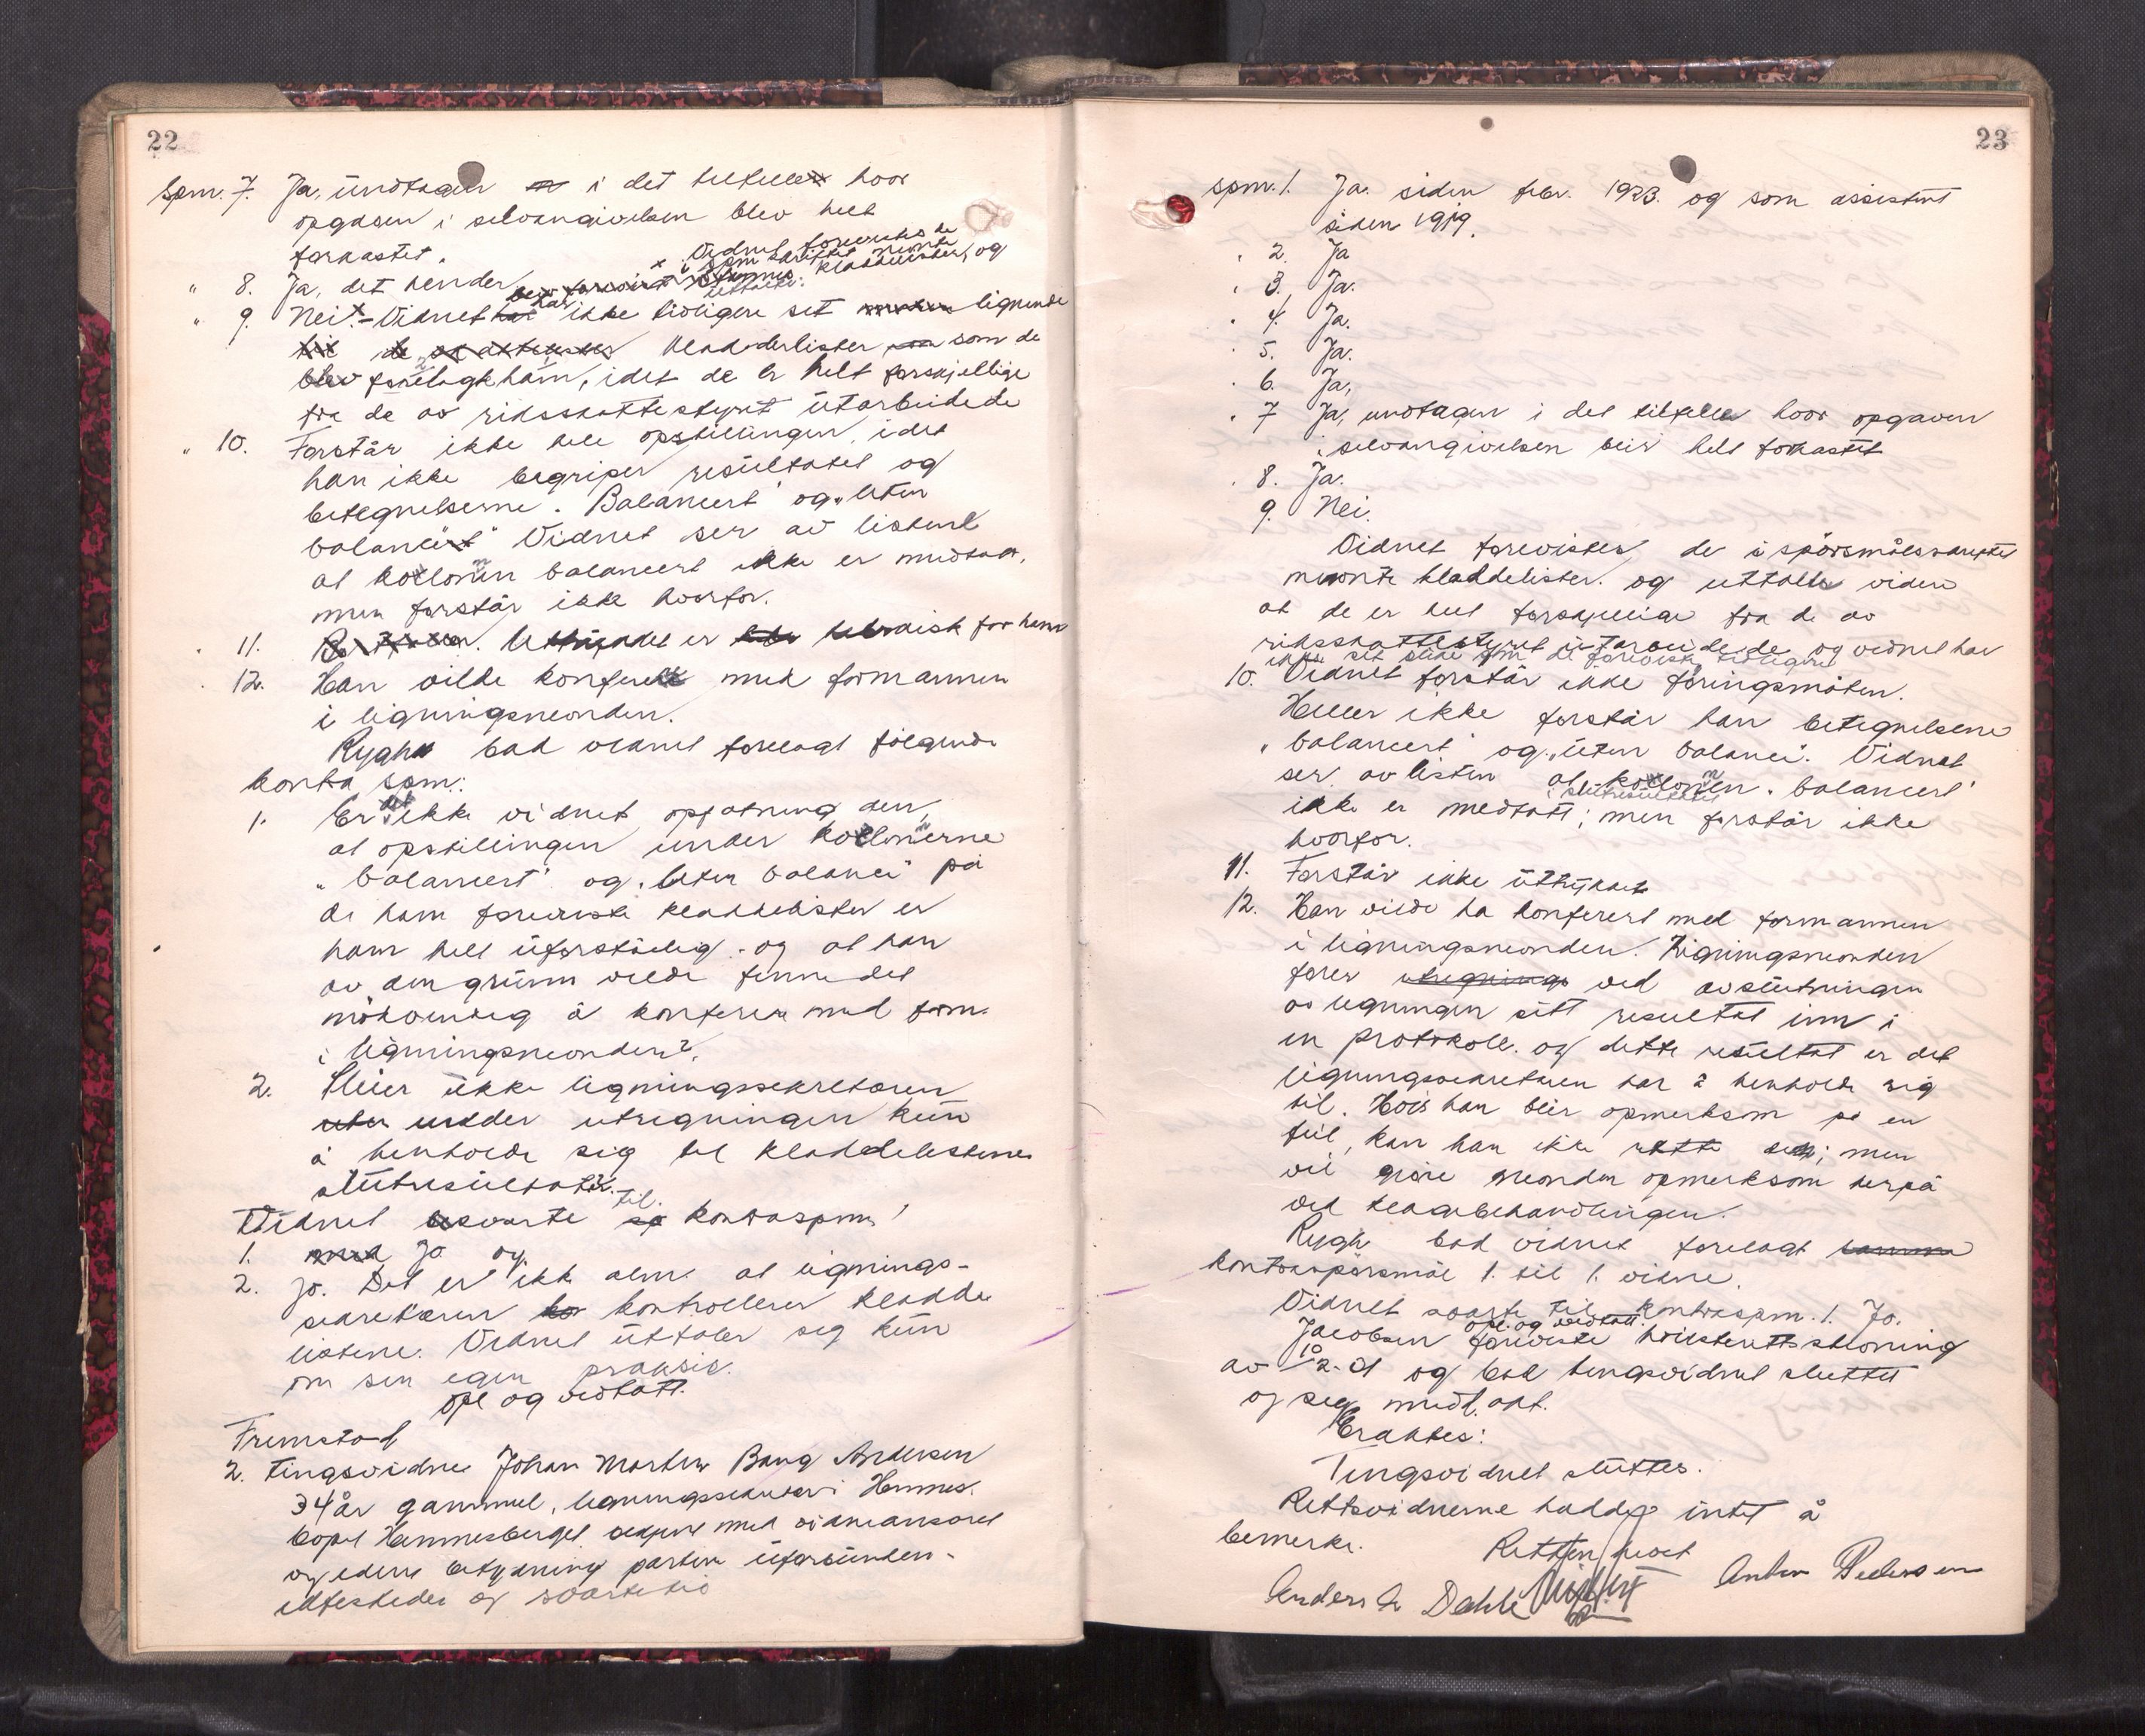 22
Spm. 7. Ja, undtagen i det tilfelle hvor
opgaven i selvangivelsen blev helt
forkastet.
" 8. Ja, det hender
x Vidnet forevistes de
i spm skriftet nevnte
kladdelister, og
uttalte:
" 9. Nei x - Vidnet har ikke tidligere set lignende
kladdelister som de
forelagt ham, idet de er helt forskjellige
fra de av riksskattestyret utarbeidede
" 10. Forstår ikke hele opstillingen, idet
han ikke begriper resultatet og
betegnelserne. Balancert og "uten
balance" Vidnet ser av listene
at kolonnen balancert ikke er medtatt,
men forstår ikke hvorfor.
" 11. Uttrykket er hebraisk for ham
" 12. Han vilde konferert med formannen
i ligningsnevnden.
Rygh bad vidnet forelagt følgende
kontra spm:
1. Er det ikke vidnets opfatning den,
at opstillingen under kolonnerne
"balancert" og "uten balance" på
de ham foreviste kladdelister er
ham helt uforståelig. og at han
av den grunn vilde finne det
nødvendig å konferere med form.
i ligningsnevnden?
2. Pleier ikke ligningssekretæren
under utregningen kun
å henholde sig til kladdelistenes
sluttresultater.
Vidnet svarte til kontraspm!
1. Jo og
2. Jo. Det er ikke alm. at lignings-
sekretæren kontrollerer kladde
listene. Vidnet uttaler seg kun
om sin egen praksis.
Opl og vedtatt.
Fremstod
2. tingsvidne Johan Morten Bang Andersen
34 år gammel, ligningssekretær i Hemnes.
bopel Hemnesberget bekjent med vidneansvaret
og edens betydning partene uforbunden-
edfestedes og svarte til
23
spm. 1. Ja. siden febr. 1923. og som assistent
siden 1919.
" 2. Ja
" 3. Ja.
" 4. Ja.
" 5. Ja.
" 6. Ja,
" 7 Ja, undtagen i det tilfelle hvor opgaven
i selvangivelsen blir helt forkastet
" 8. Ja.
9. Nei.
Vidnet forevistes de i spørsmålsskriftet
nevnte kladdelister. og uttaller videre
at de er helt forskjellige fra de av
riksskattestyret utarbeidede og vidnet har
ikke set slike som de foreviste tidligere
10. Vidnet forstår ikke føringsmåten.
Heller ikke forstår han betegnelsene
"balancert" og "uten balance". Vidnet
ser av listen at kolonnen "balancert"
i sluttresultatet
ikke er medtatt; men forstår ikke
hvorfor.
11. Forstår ikke uttrykket
12. Han vilde ha konferert med formannen
i ligningsnevnden. Ligningsnevnden
fører ved avslutningen
av ligningen sitt resultat inn i
en protokoll. og dette resultat er det
ligningssekretæren har å henholde sig
til. Hvis han blir opmerksom på en
feil, kan han ikke rette den; men
vil gjøre nevnden opmerksom herpå
ved klagebehandlingen.
Rygh bad vidnet forelagt
kontraspørsmål 1. til 1. vidne.
Vidnet svarte til kontraspm. 1. Jo.
Opl. og vedtatt.
Jacobsen foreviste høiesterettsstevning
av 12-21 og bad tingsvidnet sluttet
og seg medt. akt.
Eraktes:
Tingsvidnet sluttes.
Rettsvidnerne hadde intet å
bemerke.
Retten hevet
Anders A Dahle
Anton Pedersen